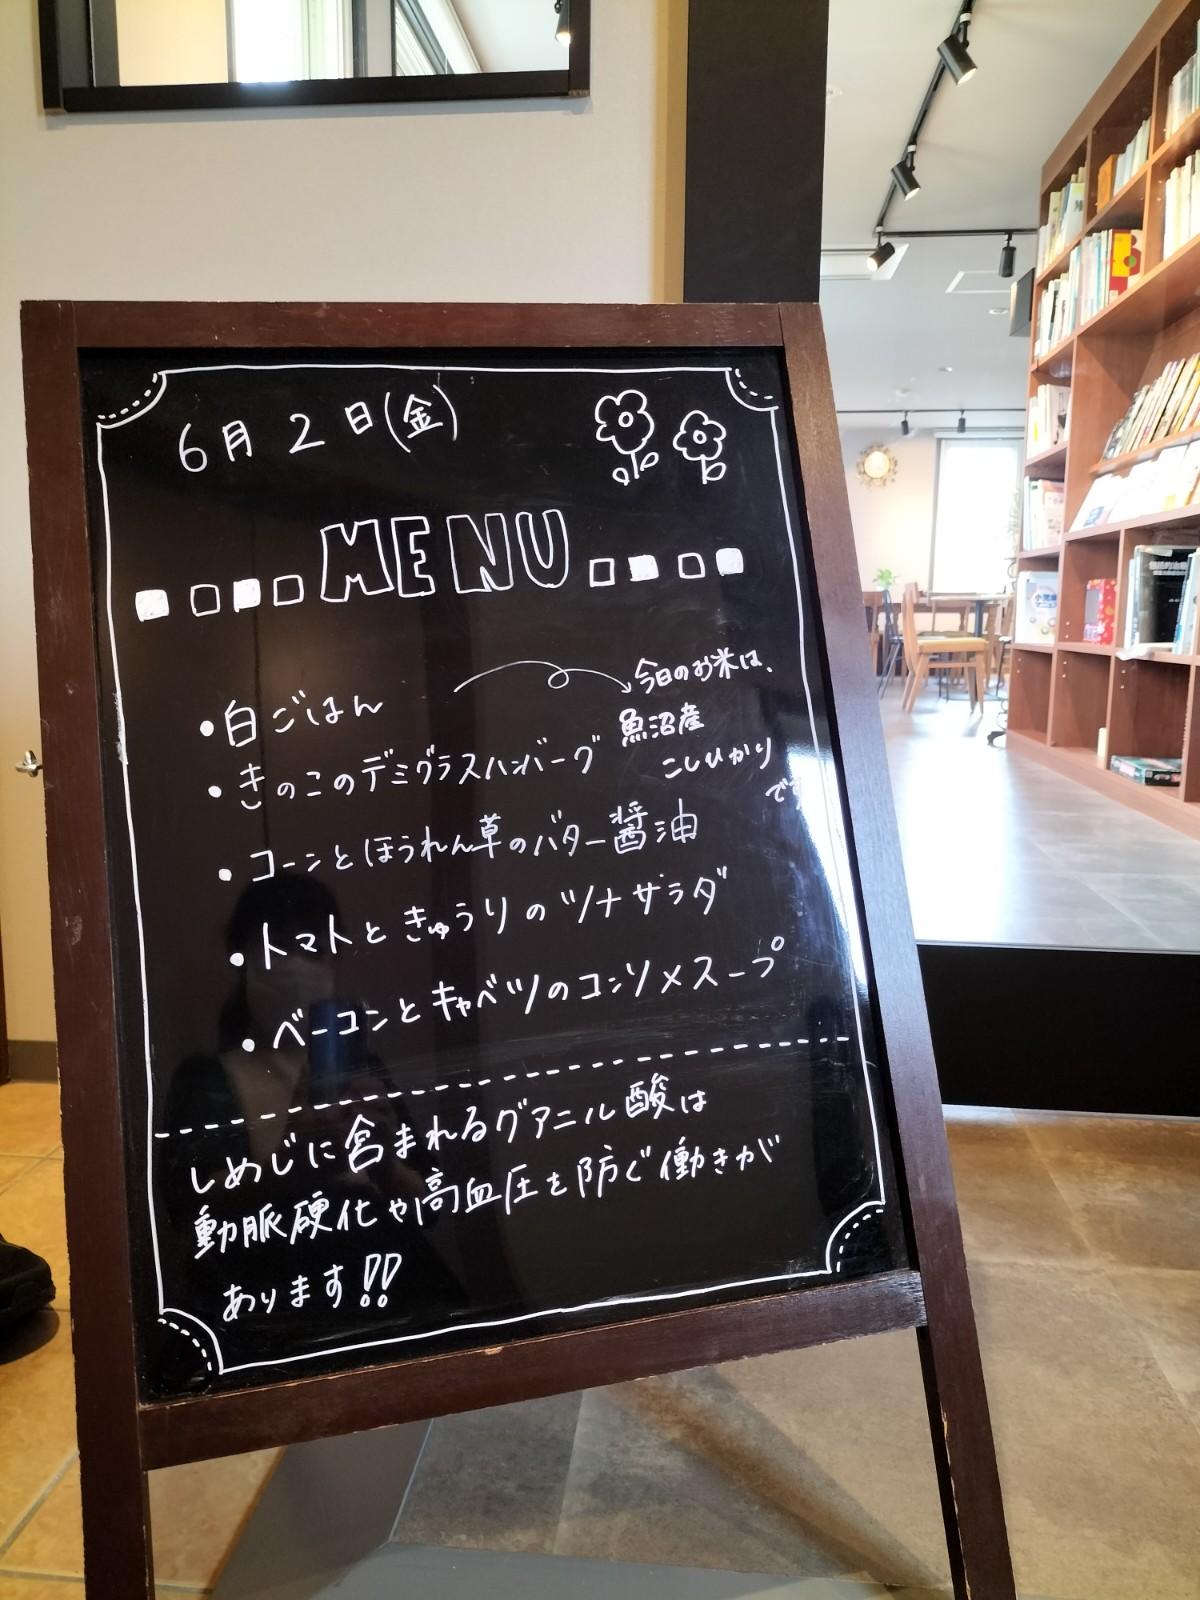 6月2日(金)
MENU
・白ごはん
今日のお米は、
魚沼産
こしひかり
です
・きのこのデミグラスハンバーグ
・コーンとほうれん草のバター醤油
・トマトときゅうりのツナサラダ
・ベーコンとキャベツのコンソメスープ
しめじに含まれるグアニル酸は
動脈硬化や高血圧を防ぐ働きが
あります!!